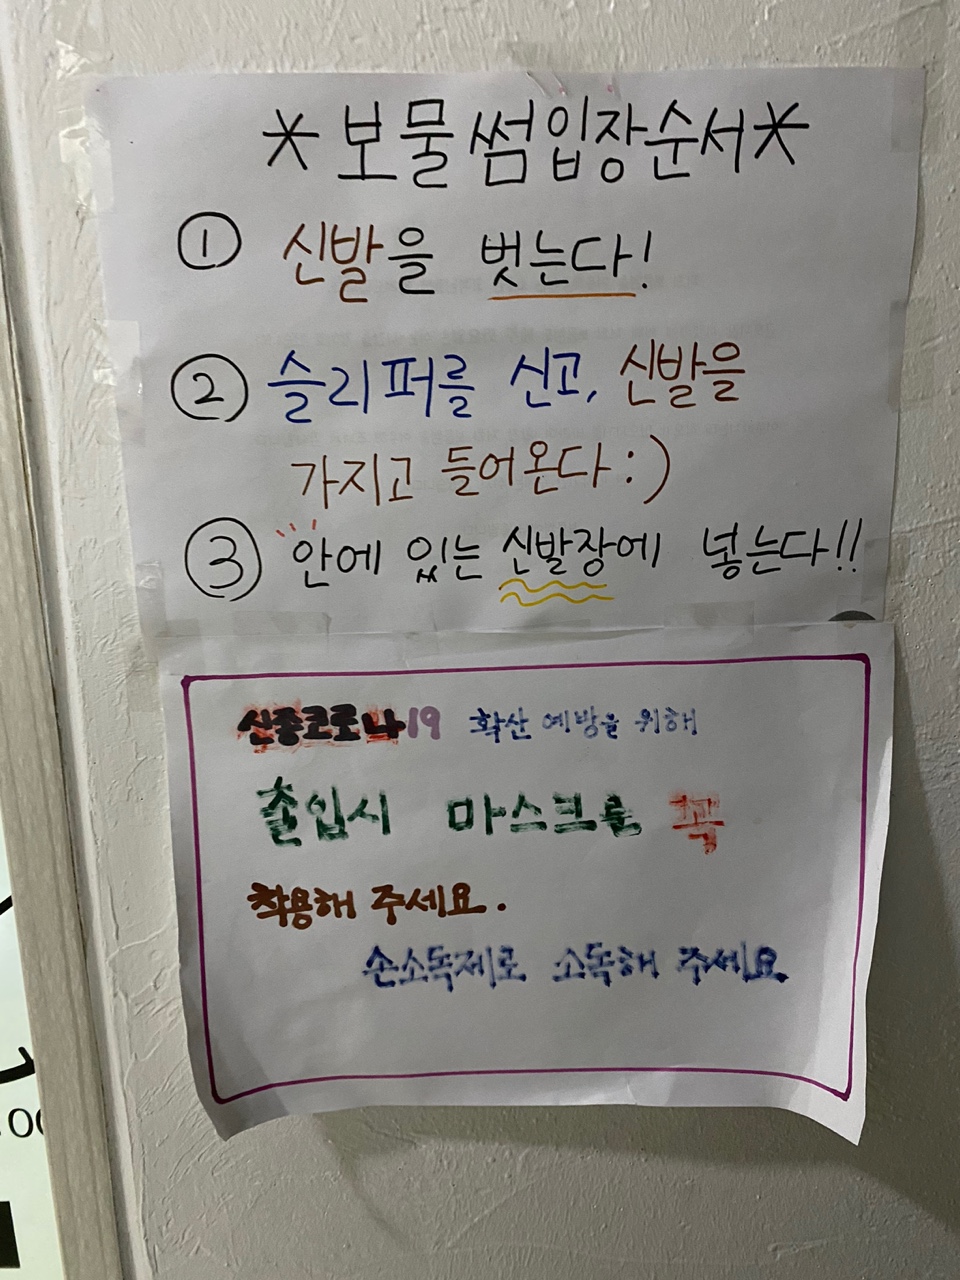 *보물썸입장순서*
① 신발을 벗는다!
② 슬리퍼를 신고, 신발을
가지고 들어온다 :)
③ 안에 있는 신발장에 넣는다!!
신종코로나19 확산 예방을 위해
출입시 마스크를 꼭
착용해 주세요.
손소독제로 소독해 주세요